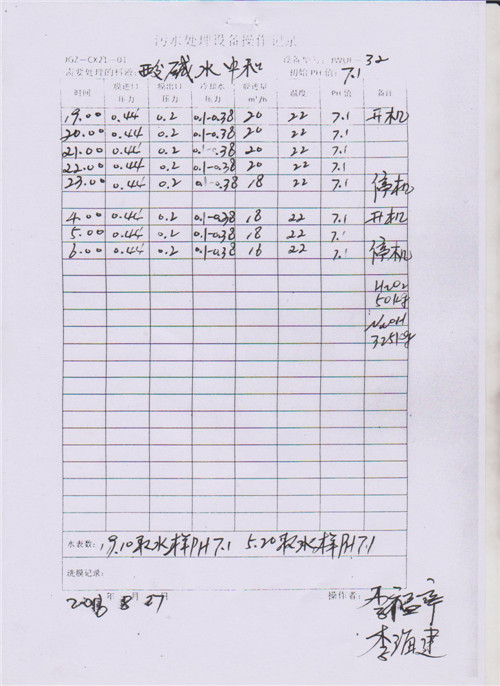 污水处理设备操作记录
JGZ-CXZ1-01 设备型号: JWUF-32
需要处理的料液: 酸碱水中和 初始PH值: 7.1
时间 膜进口压力 膜出口压力 冷却水压力 膜通量m³/h 温度 PH值 备注
19.00 0.44 0.2 0.1-0.38 20 22 7.1 开机
20.00 0.44 0.2 0.1-0.38 20 22 7.1
21.00 0.44 0.2 0.1-0.38 20 22 7.1
22.00 0.44 0.2 0.1-0.38 20 22 7.1
23.00 0.44 0.2 0.1-0.38 18 22 7.1 停机
4.00 0.44 0.2 0.1-0.38 18 22 7.1 开机
5.00 0.44 0.2 0.1-0.38 18 22 7.1
6.00 0.44 0.2 0.1-0.38 16 22 7.1 停机
H2O2
50kg
NaOH
325kg
水表数: 19.10取水样PH7.1 5.20取水样PH7.1
洗膜记录:
年 8月27 操作者: 李
李海建